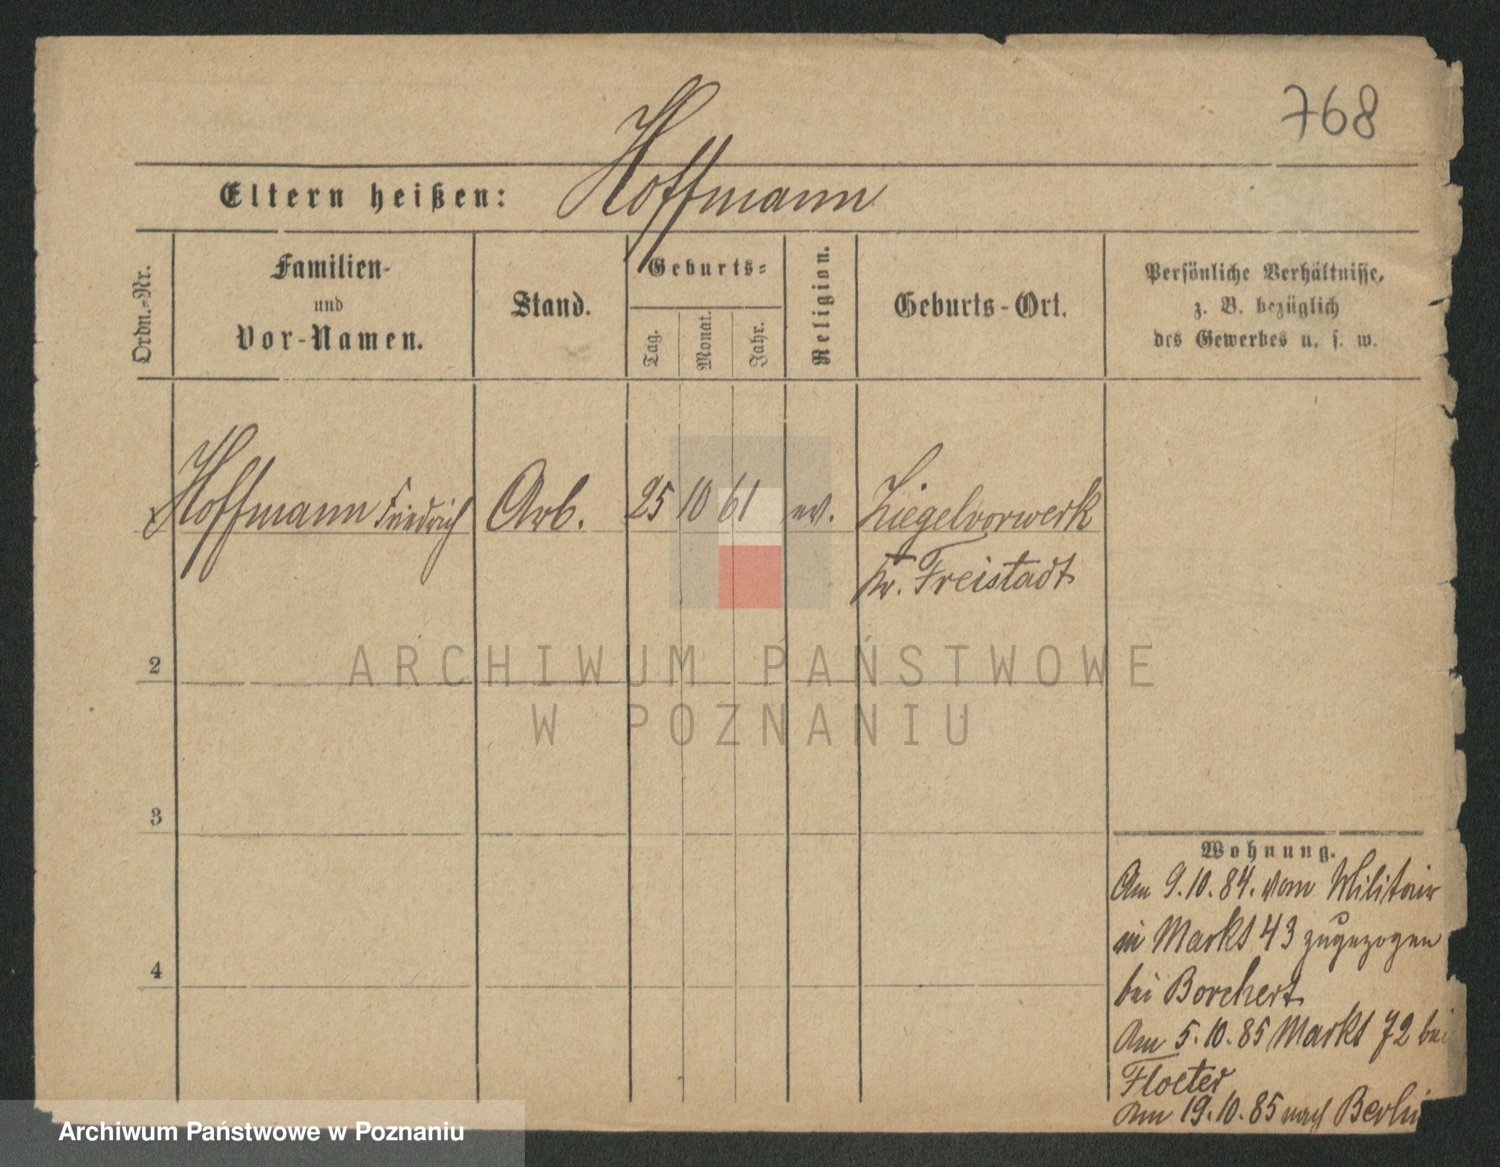 768
Eltern heißen: Hoffmann
Ordn.-Nr.
Familien-
und
Vor-Namen.
Stand.
Geburts-
Tag.
Monat.
Jahr.
Religion.
Geburts-Ort.
Persönliche Verhältnisse,
z. B. bezüglich
des Gewerbes u. s. w.
Hoffmann Friedrich Arb. 25 10 61 ev. Ziegelvorwerk
Kr. Freistadt
2
3
4
Wohnung.
Am 9.10.84. vom Militair
in Markt 43 zugezogen
bei Borchert
Am 5.10.85 Markt 72 bei
Floeter
Am 19.10.85 nach Berlin
ARCHIWUM PAŃSTWOWE
W POZNANIU
Archiwum Państwowe w Poznaniu